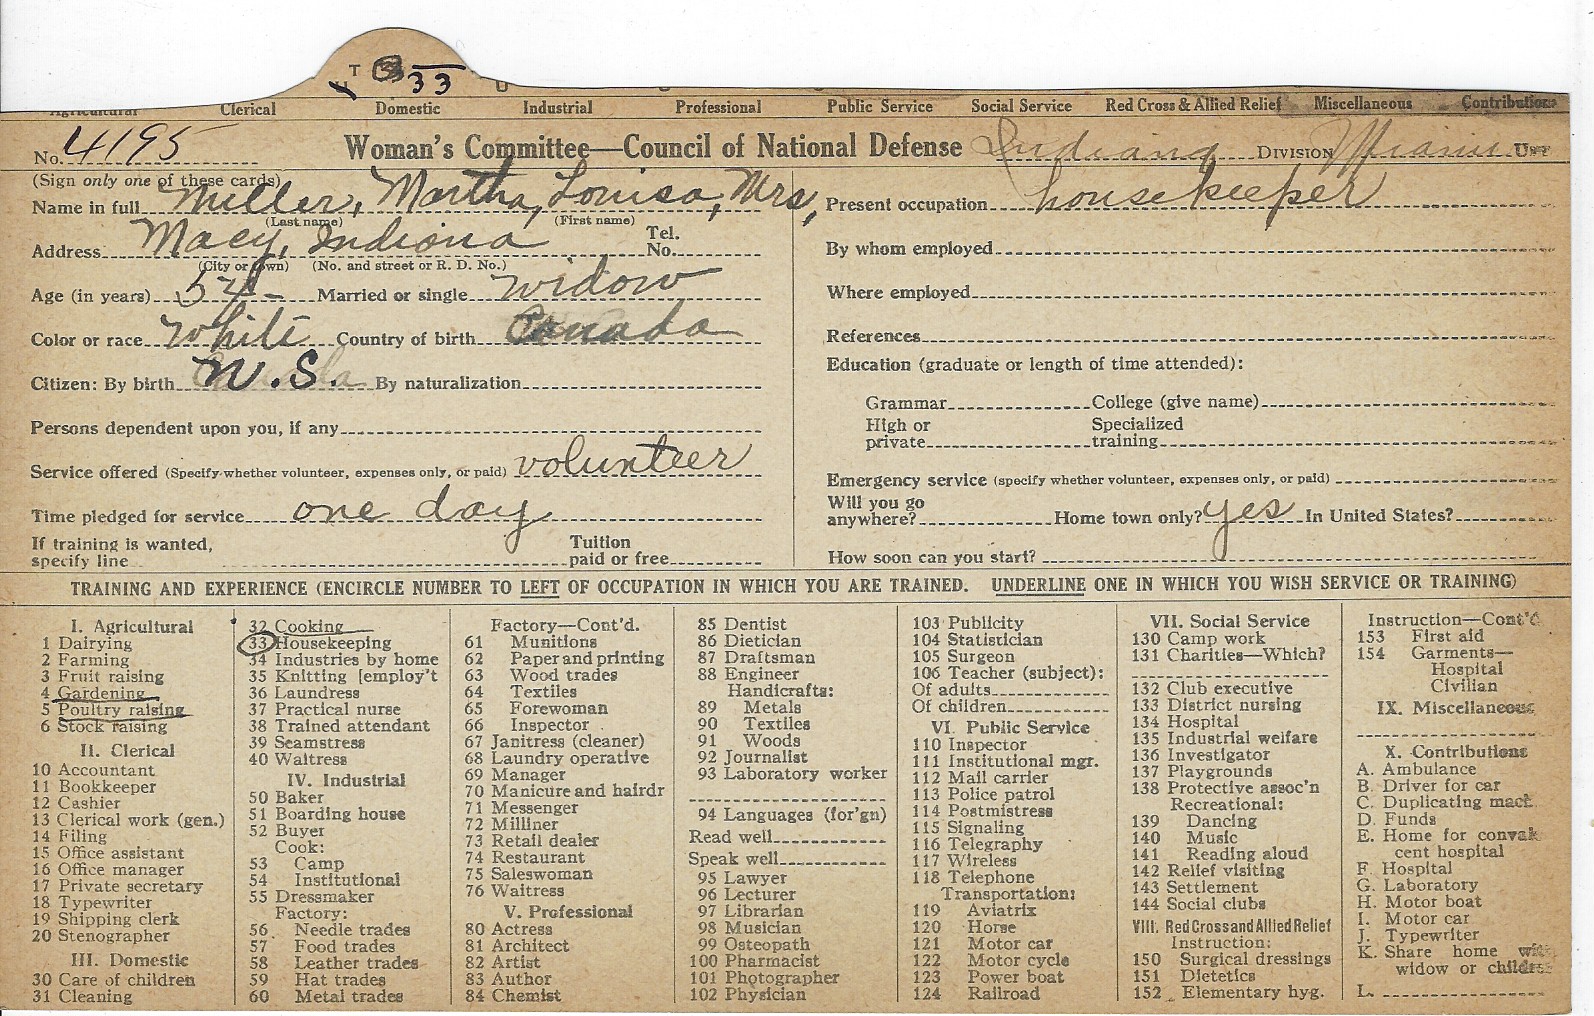 T 33
U
Agricultural Clerical Domestic Industrial Professional Public Service Social Service Red Cross & Allied Relief Miscellaneous Contributions
No. 4195 Woman's Committee—Council of National Defense Indiana DIVISION Miami UNIT
(Sign only one of these cards)
Name in full Miller, Martha, Louisa, Mrs,
(Last name) (First name)
Address Macy, Indiana Tel. No.
(City or town) (No. and street or R. D. No.)
Age (in years) 54 - Married or single widow
Color or race White Country of birth Canada
Citizen: By birth U.S. By naturalization
Persons dependent upon you, if any
Service offered (Specify whether volunteer, expenses only, or paid) volunteer
Time pledged for service one day
If training is wanted, specify line Tuition paid or free
Present occupation housekeeper
By whom employed
Where employed
References
Education (graduate or length of time attended):
Grammar College (give name)
High or private Specialized training
Emergency service (specify whether volunteer, expenses only, or paid)
Will you go anywhere? Home town only? yes In United States?
How soon can you start?
TRAINING AND EXPERIENCE (ENCIRCLE NUMBER TO LEFT OF OCCUPATION IN WHICH YOU ARE TRAINED. UNDERLINE ONE IN WHICH YOU WISH SERVICE OR TRAINING)
I. Agricultural
1 Dairying
2 Farming
3 Fruit raising
4 Gardening
5 Poultry raising
6 Stock raising
II. Clerical
10 Accountant
11 Bookkeeper
12 Cashier
13 Clerical work (gen.)
14 Filing
15 Office assistant
16 Office manager
17 Private secretary
18 Typewriter
19 Shipping clerk
20 Stenographer
III. Domestic
30 Care of children
31 Cleaning
32 Cooking
33 Housekeeping
34 Industries by home
35 Knitting [employ't
36 Laundress
37 Practical nurse
38 Trained attendant
39 Seamstress
40 Waitress
IV. Industrial
50 Baker
51 Boarding house
52 Buyer
Cook:
53 Camp
54 Institutional
55 Dressmaker
Factory:
56 Needle trades
57 Food trades
58 Leather trades
59 Hat trades
60 Metal trades
Factory—Cont'd.
61 Munitions
62 Paper and printing
63 Wood trades
64 Textiles
65 Forewoman
66 Inspector
67 Janitress (cleaner)
68 Laundry operative
69 Manager
70 Manicure and hairdr
71 Messenger
72 Milliner
73 Retail dealer
74 Restaurant
75 Saleswoman
76 Waitress
V. Professional
80 Actress
81 Architect
82 Artist
83 Author
84 Chemist
85 Dentist
86 Dietician
87 Draftsman
88 Engineer
Handicrafts:
89 Metals
90 Textiles
91 Woods
92 Journalist
93 Laboratory worker
94 Languages (for'gn)
Read well
Speak well
95 Lawyer
96 Lecturer
97 Librarian
98 Musician
99 Osteopath
100 Pharmacist
101 Photographer
102 Physician
103 Publicity
104 Statistician
105 Surgeon
106 Teacher (subject):
Of adults
Of children
VI. Public Service
110 Inspector
111 Institutional mgr.
112 Mail carrier
113 Police patrol
114 Postmistress
115 Signaling
116 Telegraphy
117 Wireless
118 Telephone
Transportation:
119 Aviatrix
120 Horse
121 Motor car
122 Motor cycle
123 Power boat
124 Railroad
VII. Social Service
130 Camp work
131 Charities—Which?
132 Club executive
133 District nursing
134 Hospital
135 Industrial welfare
136 Investigator
137 Playgrounds
138 Protective assoc'n
Recreational:
139 Dancing
140 Music
141 Reading aloud
142 Relief visiting
143 Settlement
144 Social clubs
VIII. Red Cross and Allied Relief
Instruction:
150 Surgical dressings
151 Dietetics
152 Elementary hyg.
Instruction—Cont'd.
153 First aid
154 Garments—
Hospital
Civilian
IX. Miscellaneous
X. Contributions
A. Ambulance
B. Driver for car
C. Duplicating mach.
D. Funds
E. Home for convales-
cent hospital
F. Hospital
G. Laboratory
H. Motor boat
I. Motor car
J. Typewriter
K. Share home with
widow or children
L.